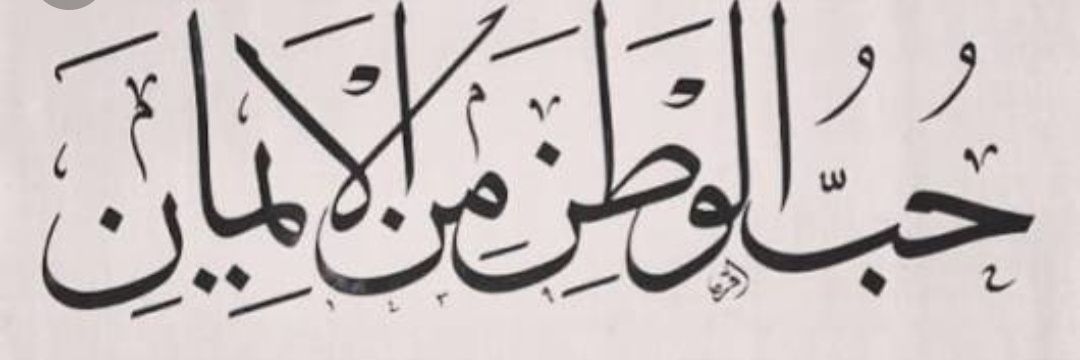 حُبُّ الْوَطَنِ مِنَ الْإِيمَانِ